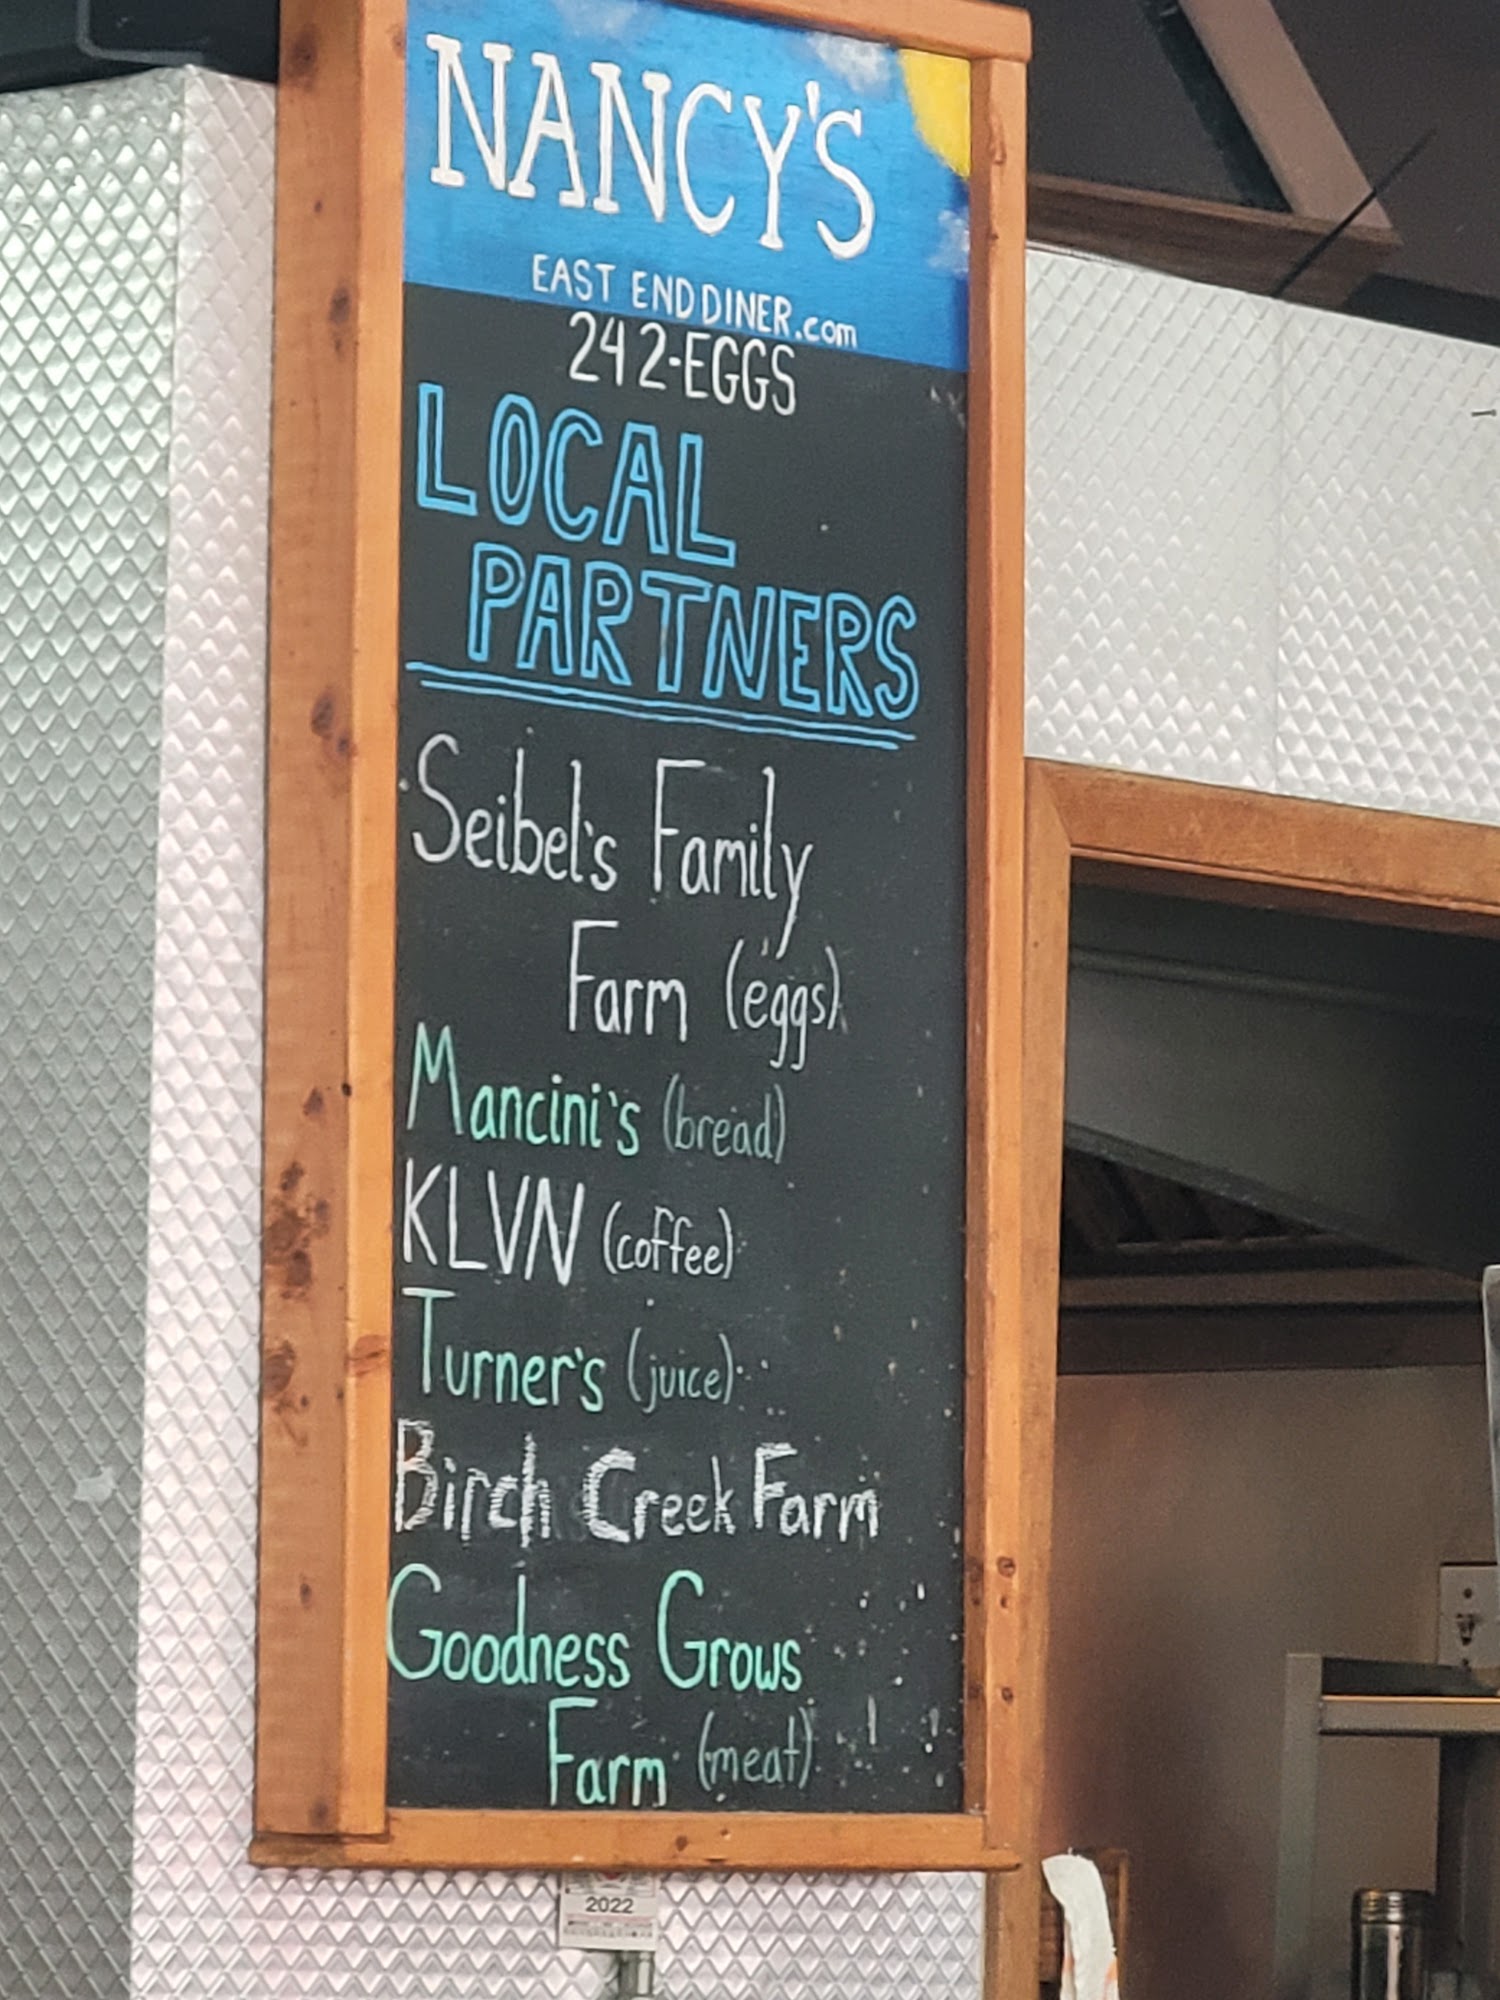 NANCY'S
EAST END DINER.com
242-EGGS
LOCAL
PARTNERS
Seibel's Family
Farm (eggs)
Mancini's (bread)
KLVN (coffee)
Turner's (juice)
Birch Creek Farm
Goodness Grows
Farm (meat)
2022